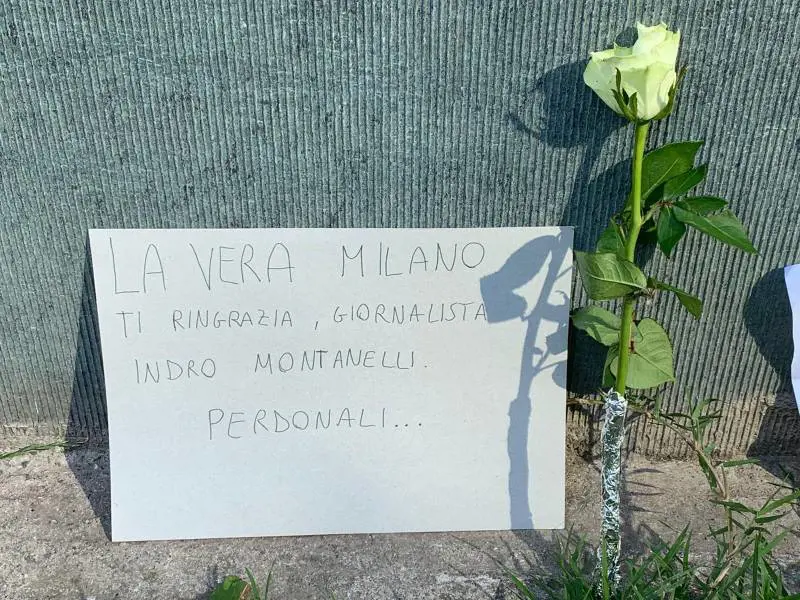 LA VERA MILANO
TI RINGRAZIA, GIORNALISTA
INDRO MONTANELLI.
PERDONALI...